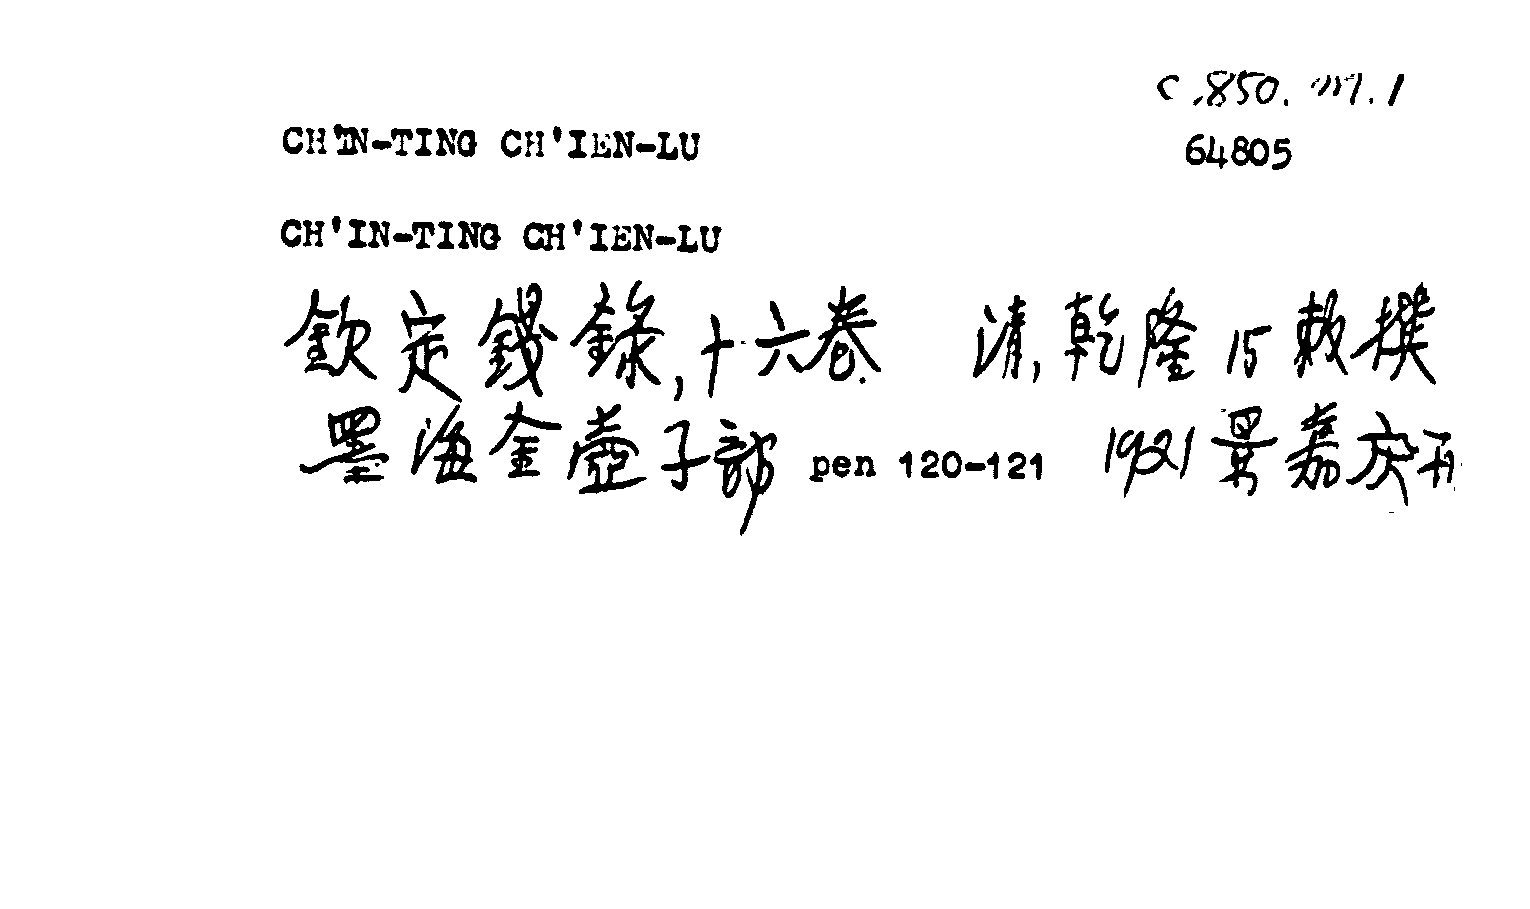 c.850.m.1
64805
CH'IN-TING CH'IEN-LU
CH'IN-TING CH'IEN-LU
欽定錢錄,十六卷. 清,乾隆15敕撰
墨海金壺子部 pen 120-121 1921景嘉庆刊